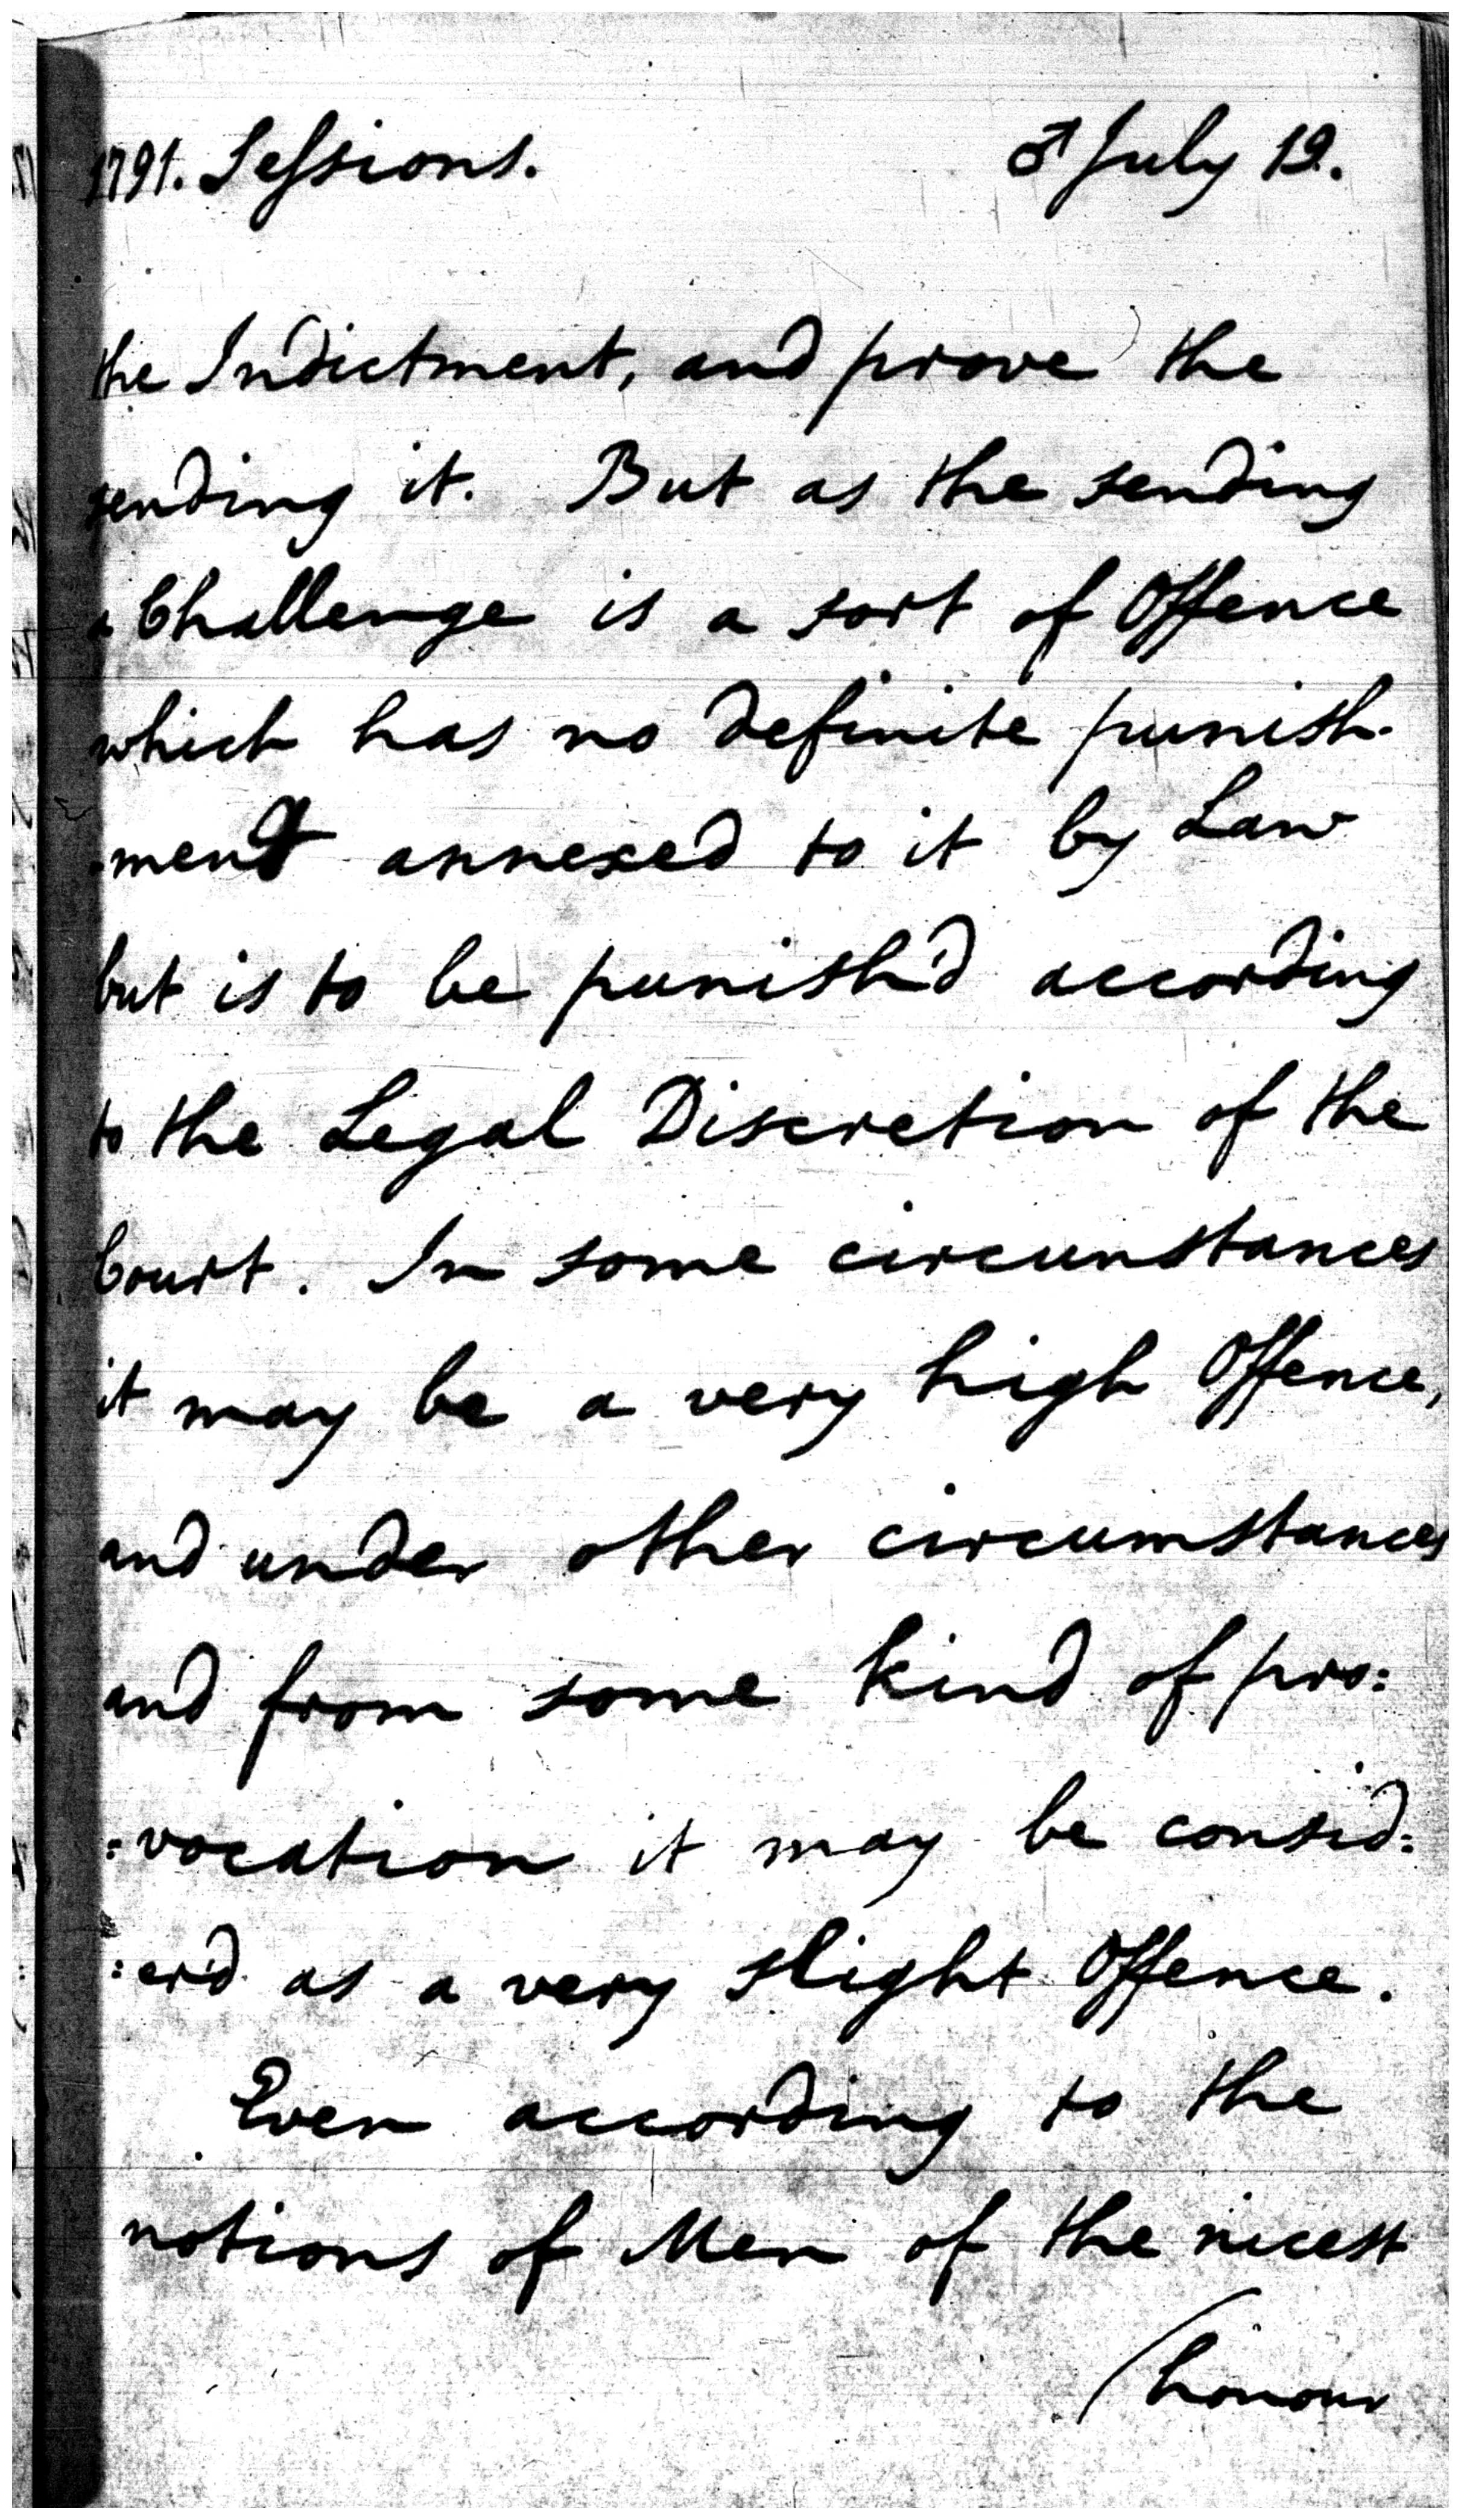 1791. Sessions. ♂ July 19.
the Indictment, and prove the
sending it. But as the sending
a Challenge is a sort of Offence
which has no definite punish-
-ment annexed to it by Law
but is to be punish'd according
to the Legal Discretion of the
Court. In some circumstances
it may be a very high Offence,
and under other circumstances
and from some kind of pro:
:vocation it may be consid:
:er'd as a very slight Offence.
Even according to the
notions of Men of the nicest
honour